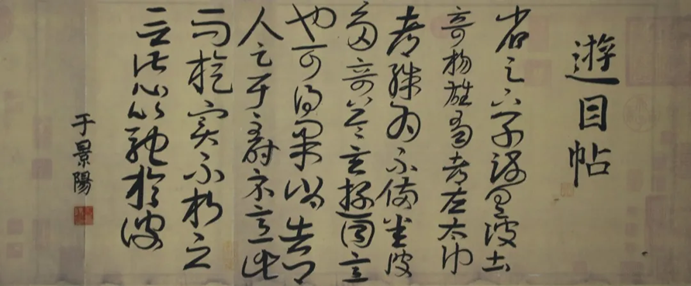 遊目帖
省足下別疏具彼土
奇揚雄蜀都左太沖
都殊為不備悉彼
多奇益令其遊目意
也可得果當告
人足耳至時示意此
而旋實不朽之
言此心以馳於彼
于景陽